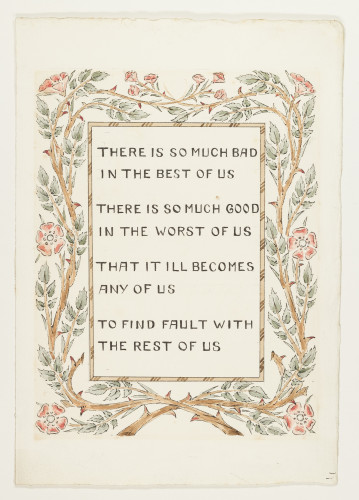 THERE IS SO MUCH BAD
IN THE BEST OF US
THERE IS SO MUCH GOOD
IN THE WORST OF US
THAT IT ILL BECOMES
ANY OF US
TO FIND FAULT WITH
THE REST OF US